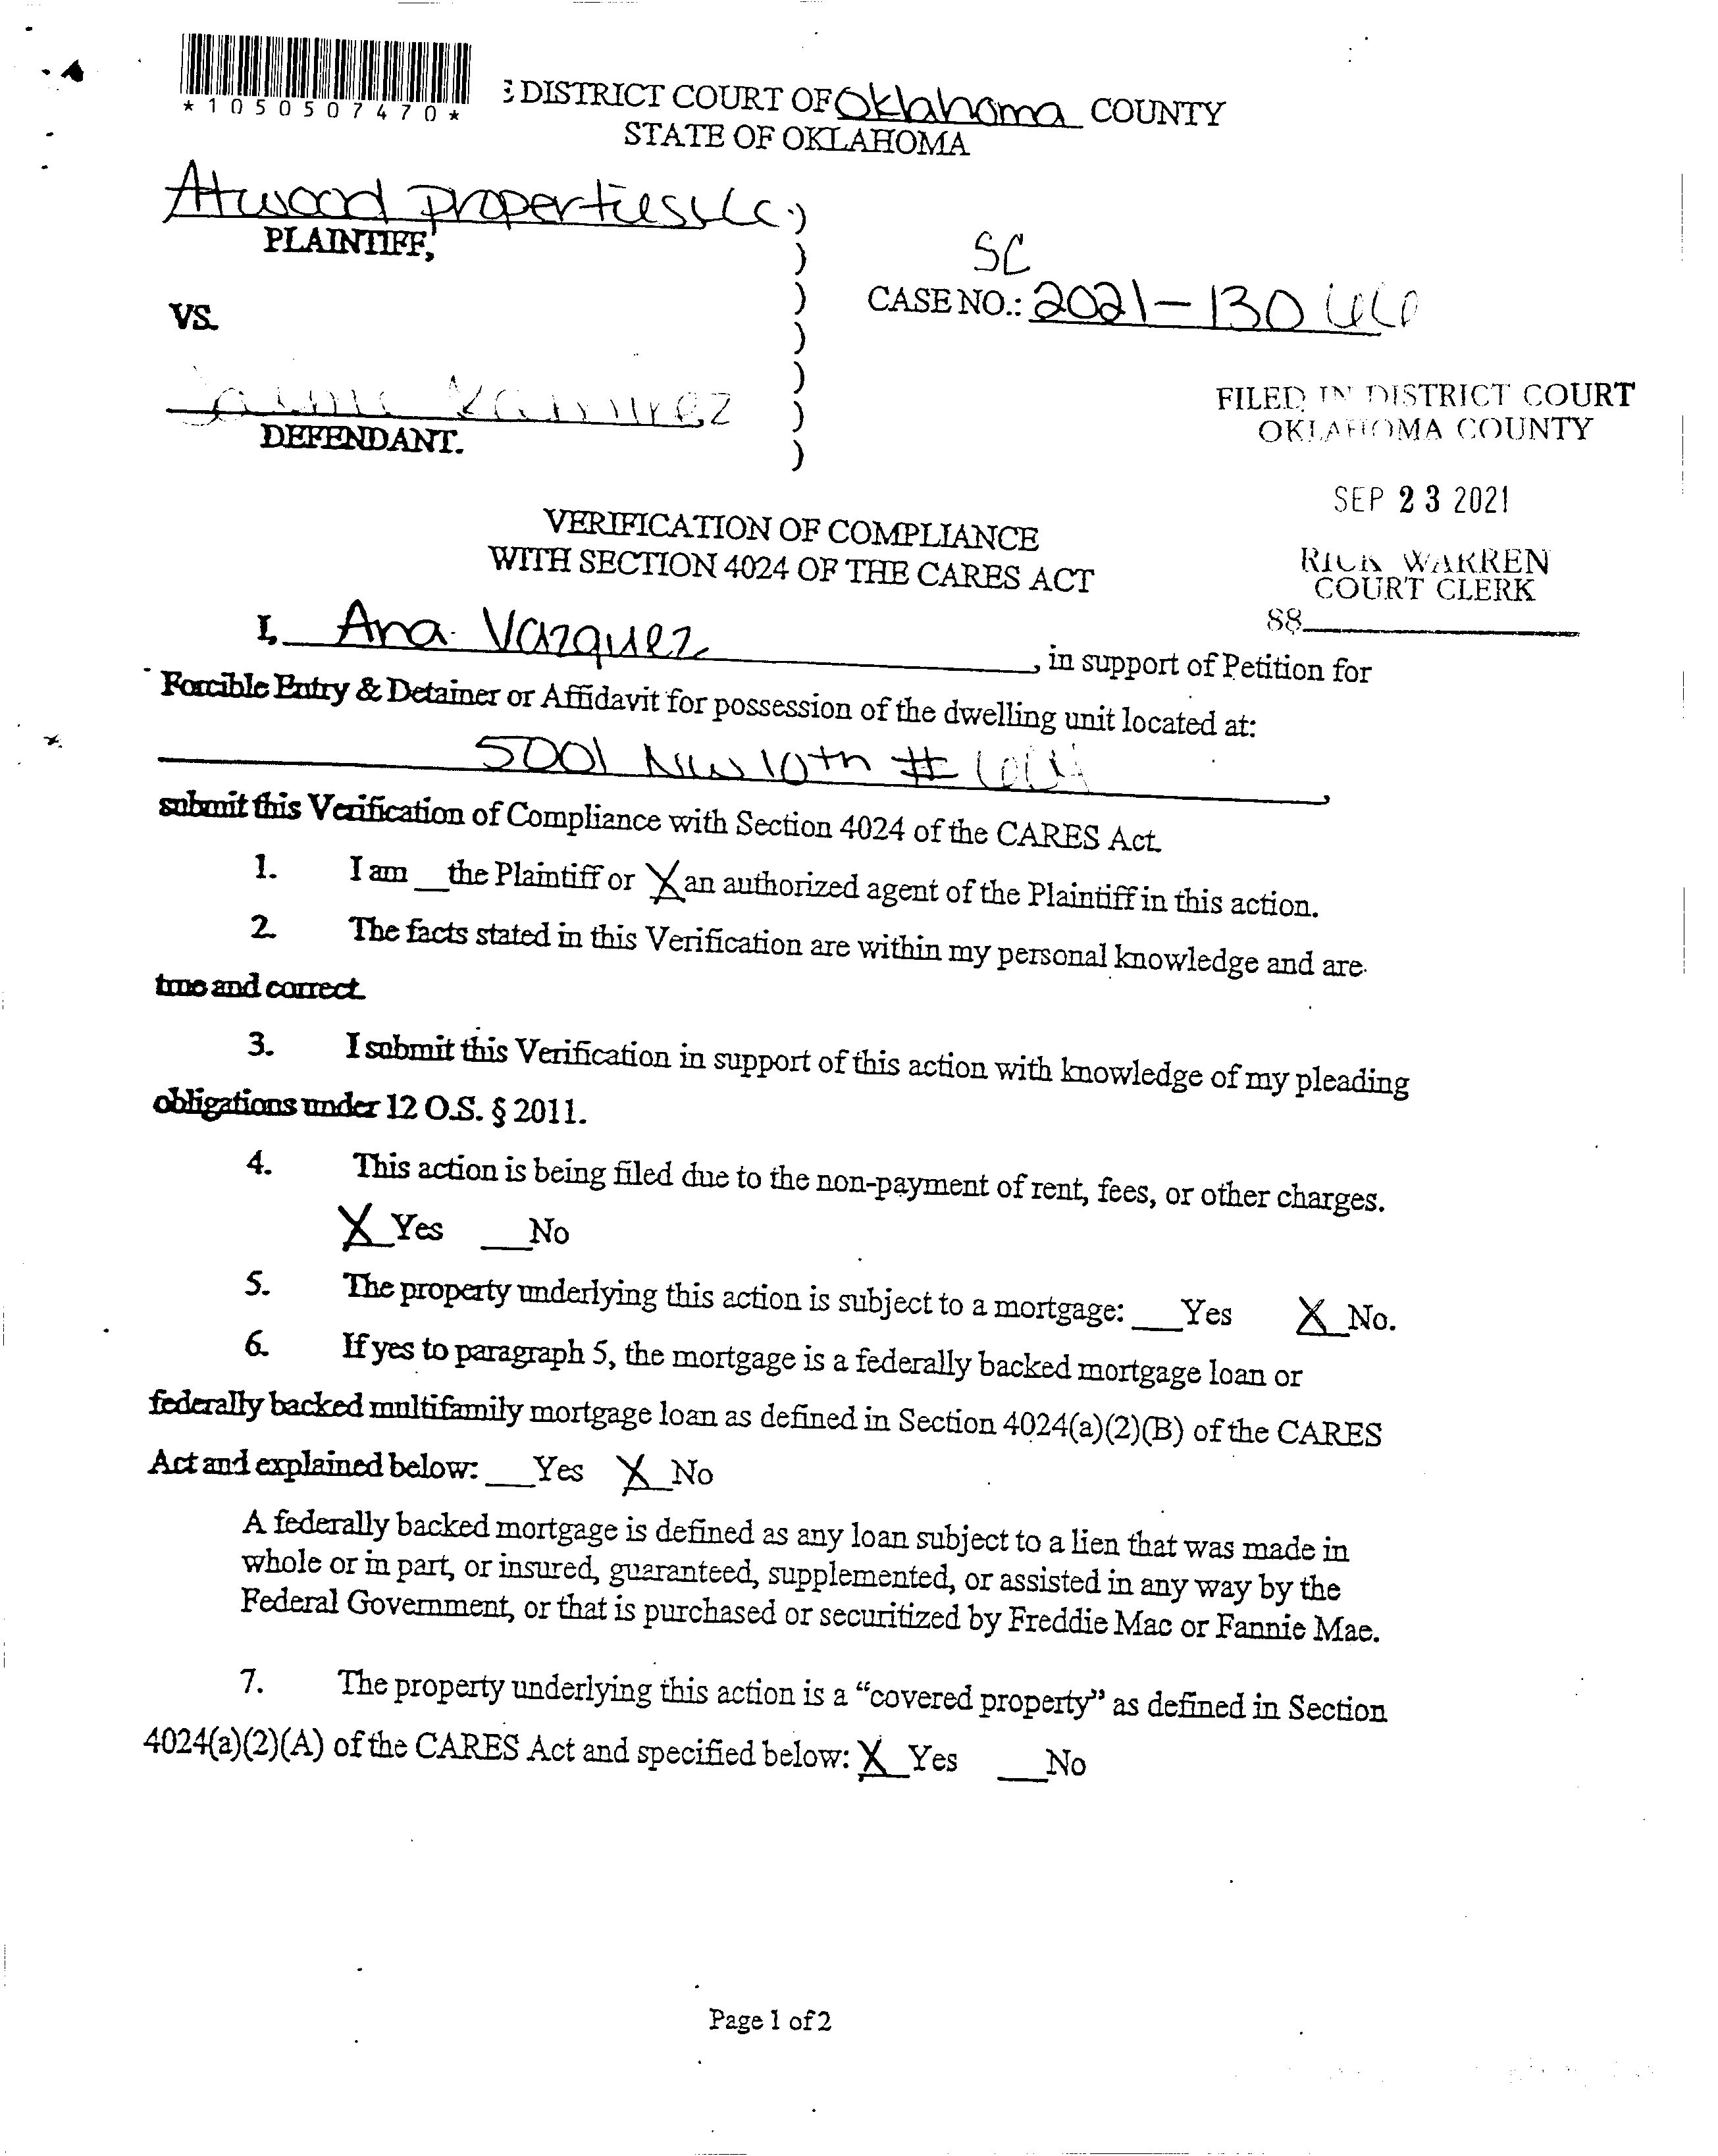 *1050507470*
DISTRICT COURT OF Oklahoma COUNTY
STATE OF OKLAHOMA
Atwood properties LLC )
PLAINTIFF, )
SC
VS. ) CASE NO.: 2021-130
)
Ramirez )
DEFENDANT. )
FILED IN DISTRICT COURT
OKLAHOMA COUNTY
SEP 23 2021
RICK WARREN
COURT CLERK
88
VERIFICATION OF COMPLIANCE
WITH SECTION 4024 OF THE CARES ACT
I, Ana Vazquez, in support of Petition for
Forcible Entry & Detainer or Affidavit for possession of the dwelling unit located at:
5001 NW 10th #
submit this Verification of Compliance with Section 4024 of the CARES Act.
1. I am __the Plaintiff or X an authorized agent of the Plaintiff in this action.
2. The facts stated in this Verification are within my personal knowledge and are
true and correct.
3. I submit this Verification in support of this action with knowledge of my pleading
obligations under 12 O.S. § 2011.
4. This action is being filed due to the non-payment of rent, fees, or other charges.
X Yes __No
5. The property underlying this action is subject to a mortgage: __Yes X No.
6. If yes to paragraph 5, the mortgage is a federally backed mortgage loan or
federally backed multifamily mortgage loan as defined in Section 4024(a)(2)(B) of the CARES
Act and explained below: __Yes X No
A federally backed mortgage is defined as any loan subject to a lien that was made in
whole or in part, or insured, guaranteed, supplemented, or assisted in any way by the
Federal Government, or that is purchased or securitized by Freddie Mac or Fannie Mae.
7. The property underlying this action is a “covered property” as defined in Section
4024(a)(2)(A) of the CARES Act and specified below: X Yes __No
Page 1 of 2